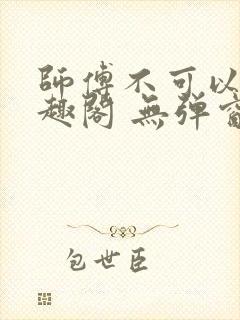 師傅不可以
趣閣 無彈窗
包世臣